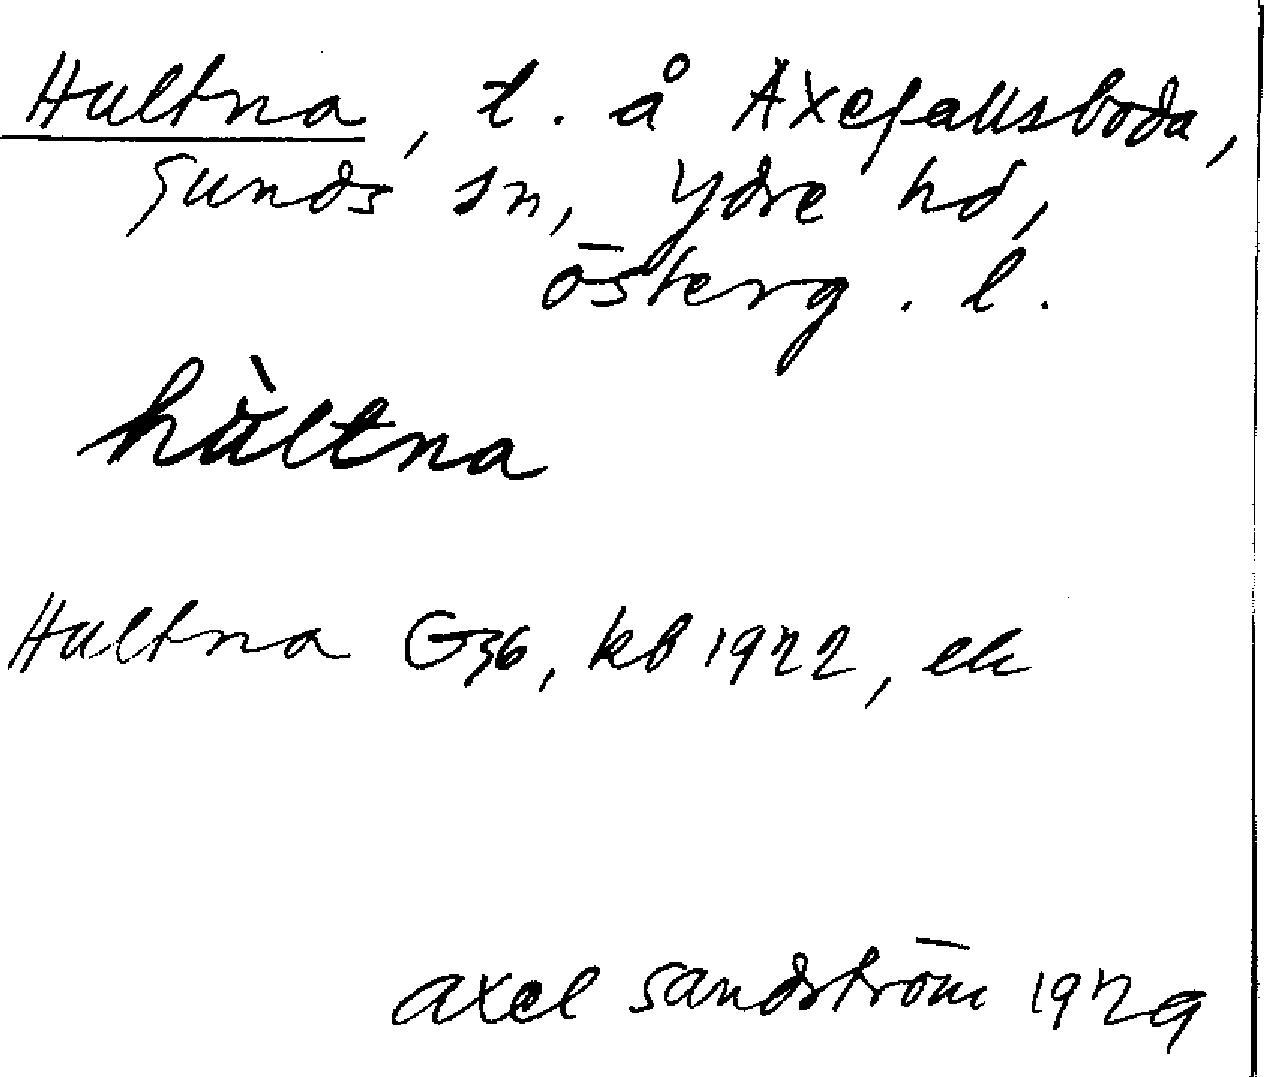 Hultna, t. å Axefallsboda,
Sunds sn, Ydre hd,
Österg. l.
hùltna
Hultna G36, kb 1922, ek
Axel Sandström 1929